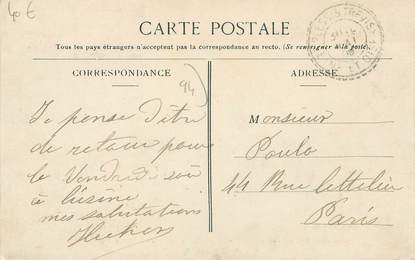 40 €
CARTE POSTALE
Tous les pays étrangers n'acceptent pas la correspondance au recto. (Se renseigner à la poste).
CORRESPONDANCE
94
Je pense Dètre
de retour pour
le Vendredi soir
à lusine
mes salutations
ADRESSE
Monsieur
Poulo
44 Rue letellier
Paris